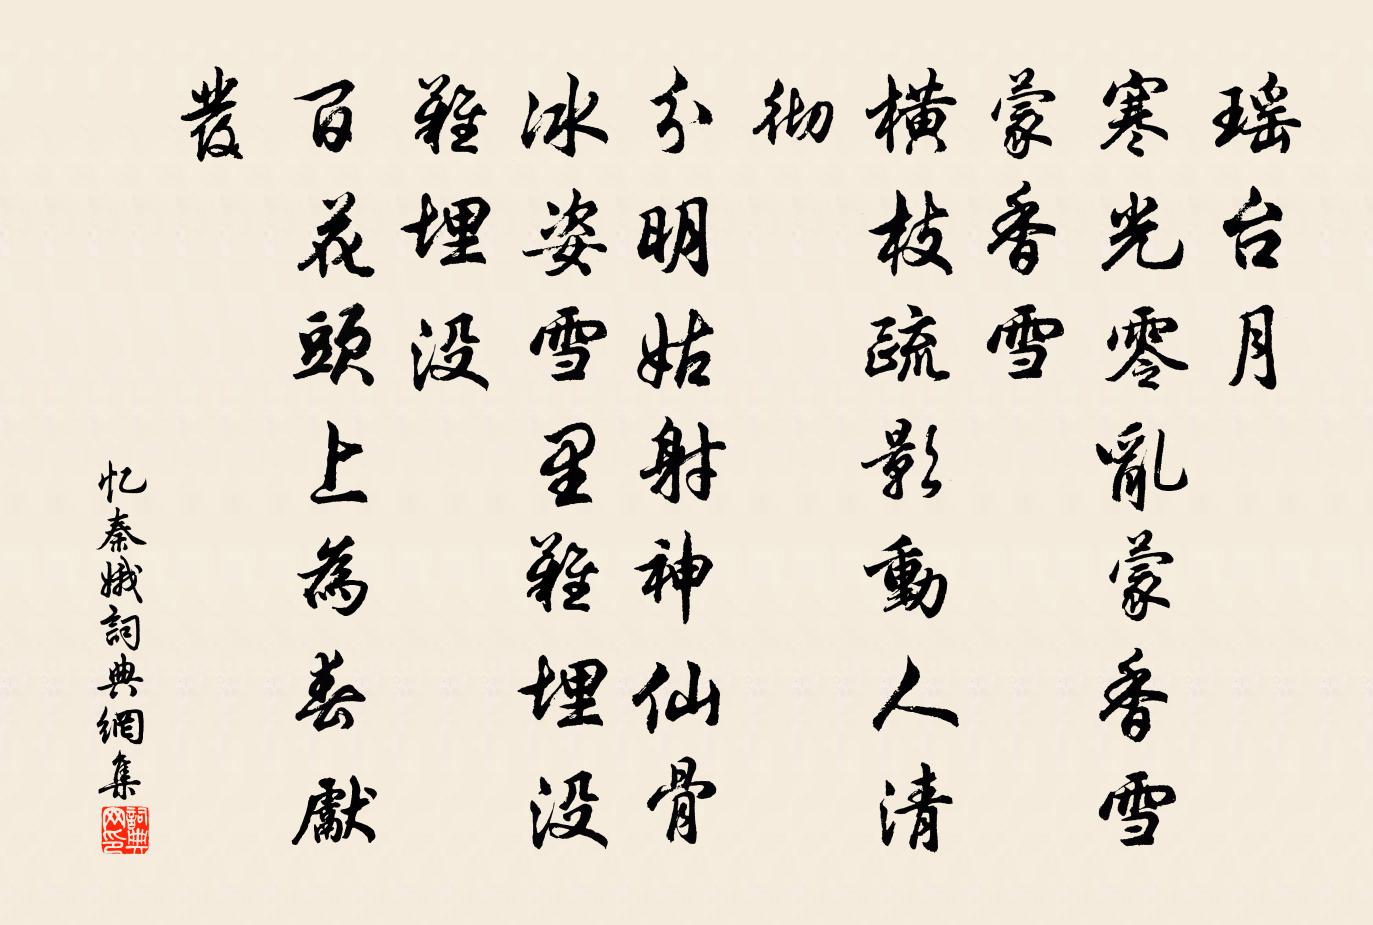 瑶台月
寒光零亂蒙香雪
蒙香雪
橫枝疏影動人清
彻
分明姑射神仙骨
冰姿雪里難埋没
難埋没
百花頭上為春獻
發
忆秦娥詞典網集
詞典
网印